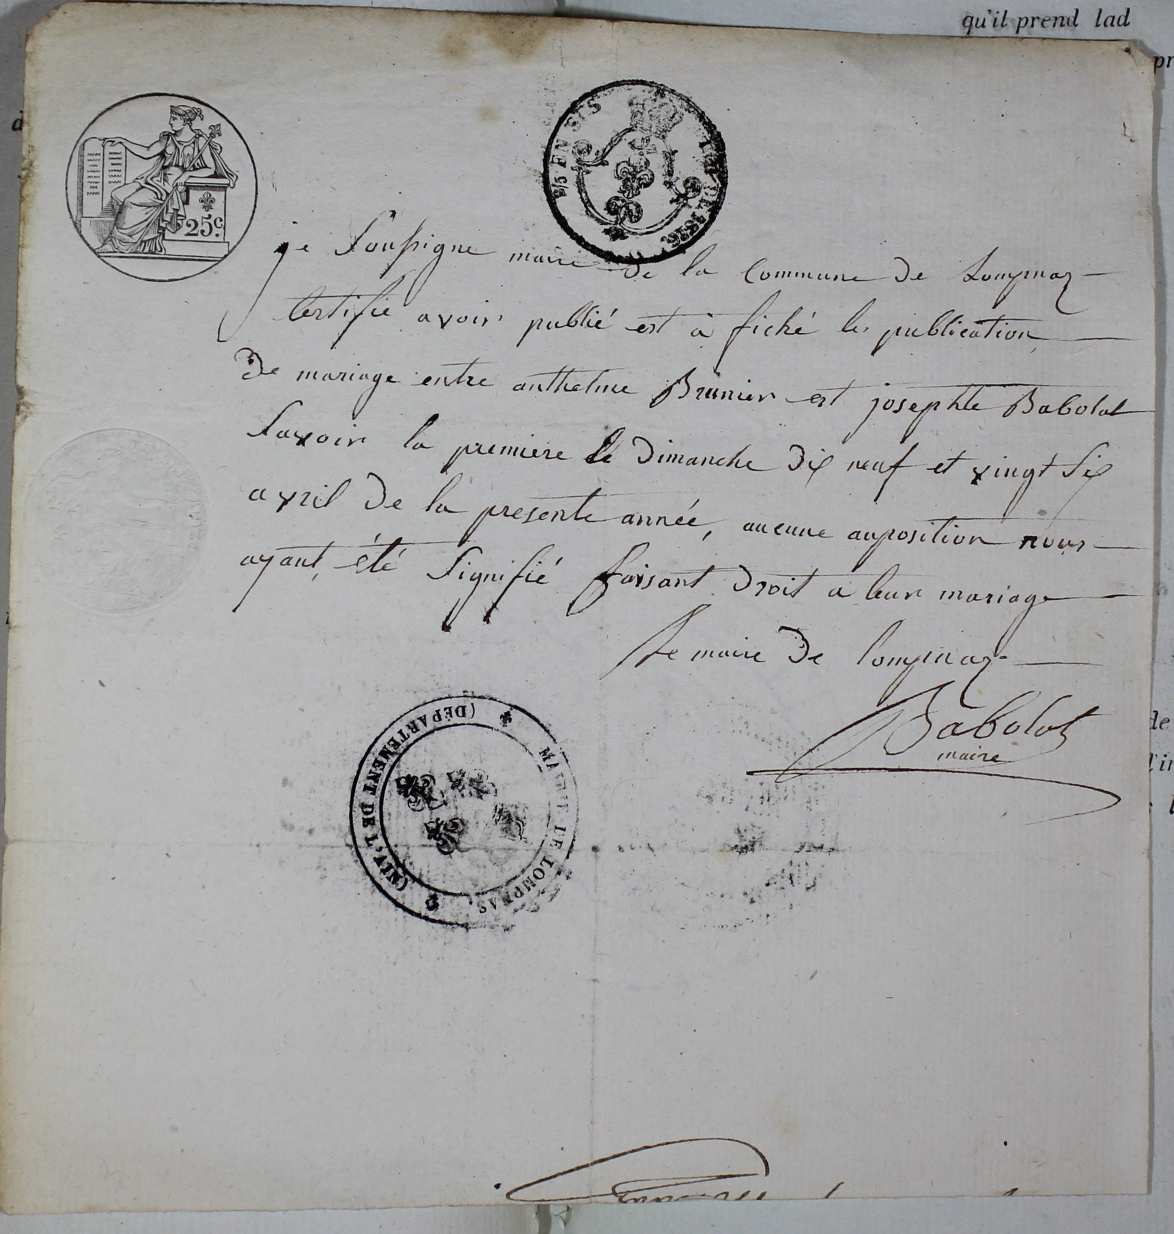 qu'il prend lad
pr
d
25c
2/5 EN SUS
LOI DE 1816.
je soussigne maire de la commune de Lompnaz
certifie avoir publié est à fiché les publication
De mariage entre anthelme Brunier est josephte Babolat
savoir la premiere le dimanche dix neuf et vingt six
avril de la presente année, aucune auposition nous
ayant été signifié faisant droit a leur mariage
Le maire De lompnaz
Babolat
maire
MAIRIE DE LOMPNAS.
(DÉPARTEMENT DE L'AIN)
de
l'in